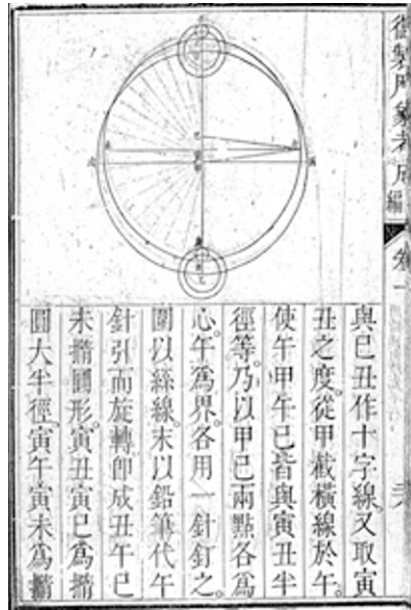 御製厯象考成後編
卷一
與巳丑作十字線。又取寅
丑之度。從甲截橫線於午。
使午甲午巳皆與寅丑半
徑等。乃以甲巳兩點各爲
心。午爲界。各用一針釘之。
圍以絲線。末以鉛筆代午
針引而旋轉卽成丑午巳
未撱圓形。寅丑寅巳爲撱
圓大半徑。寅午寅未爲撱